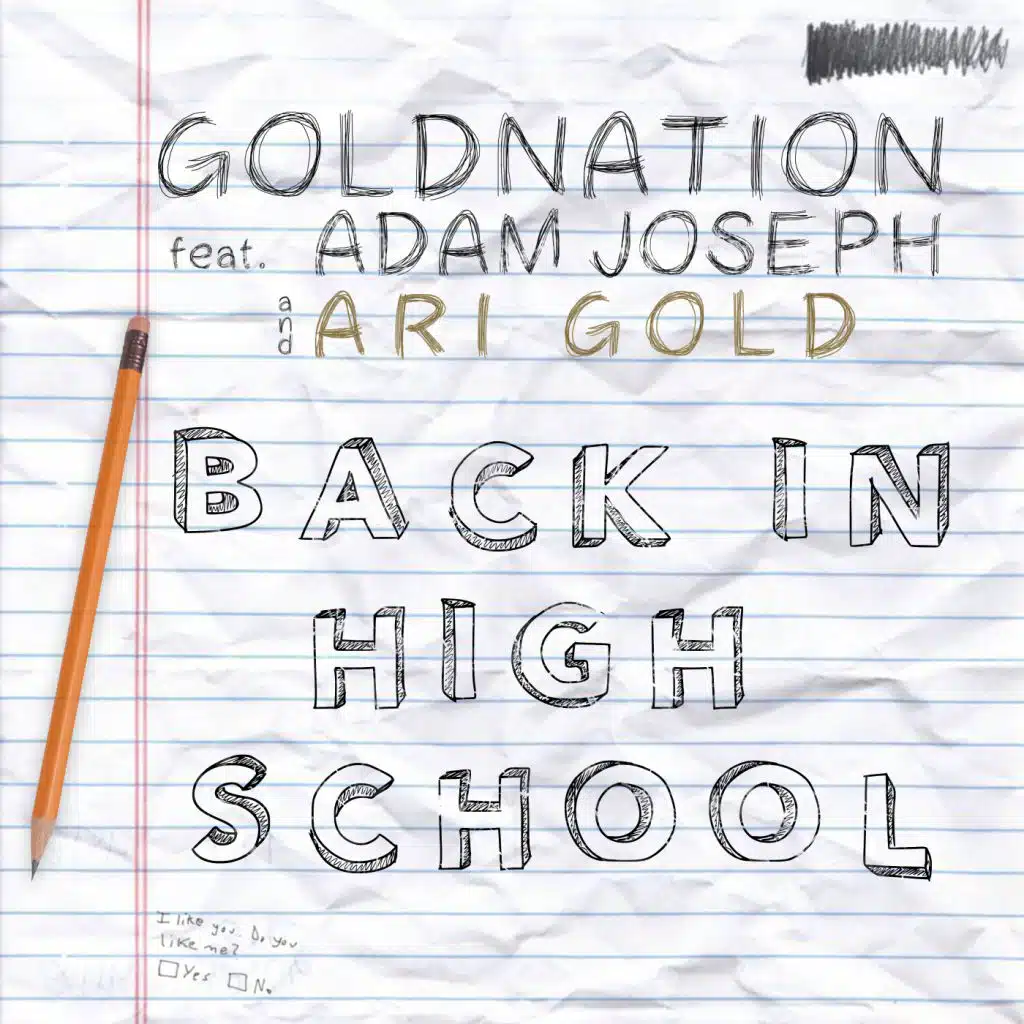 GOLDNATION
feat. ADAM JOSEPH
and ARI GOLD
BACK IN
HIGH
SCHOOL
I like you. Do you
like me?
Yes No